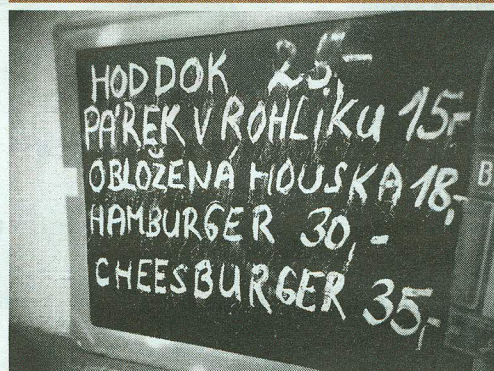 HODDOK 25.-
PÁREK V ROHLÍKU 15,-
OBLOŽENÁ HOUSKA 18,-
HAMBURGER 30,-
CHEESBURGER 35,-
B